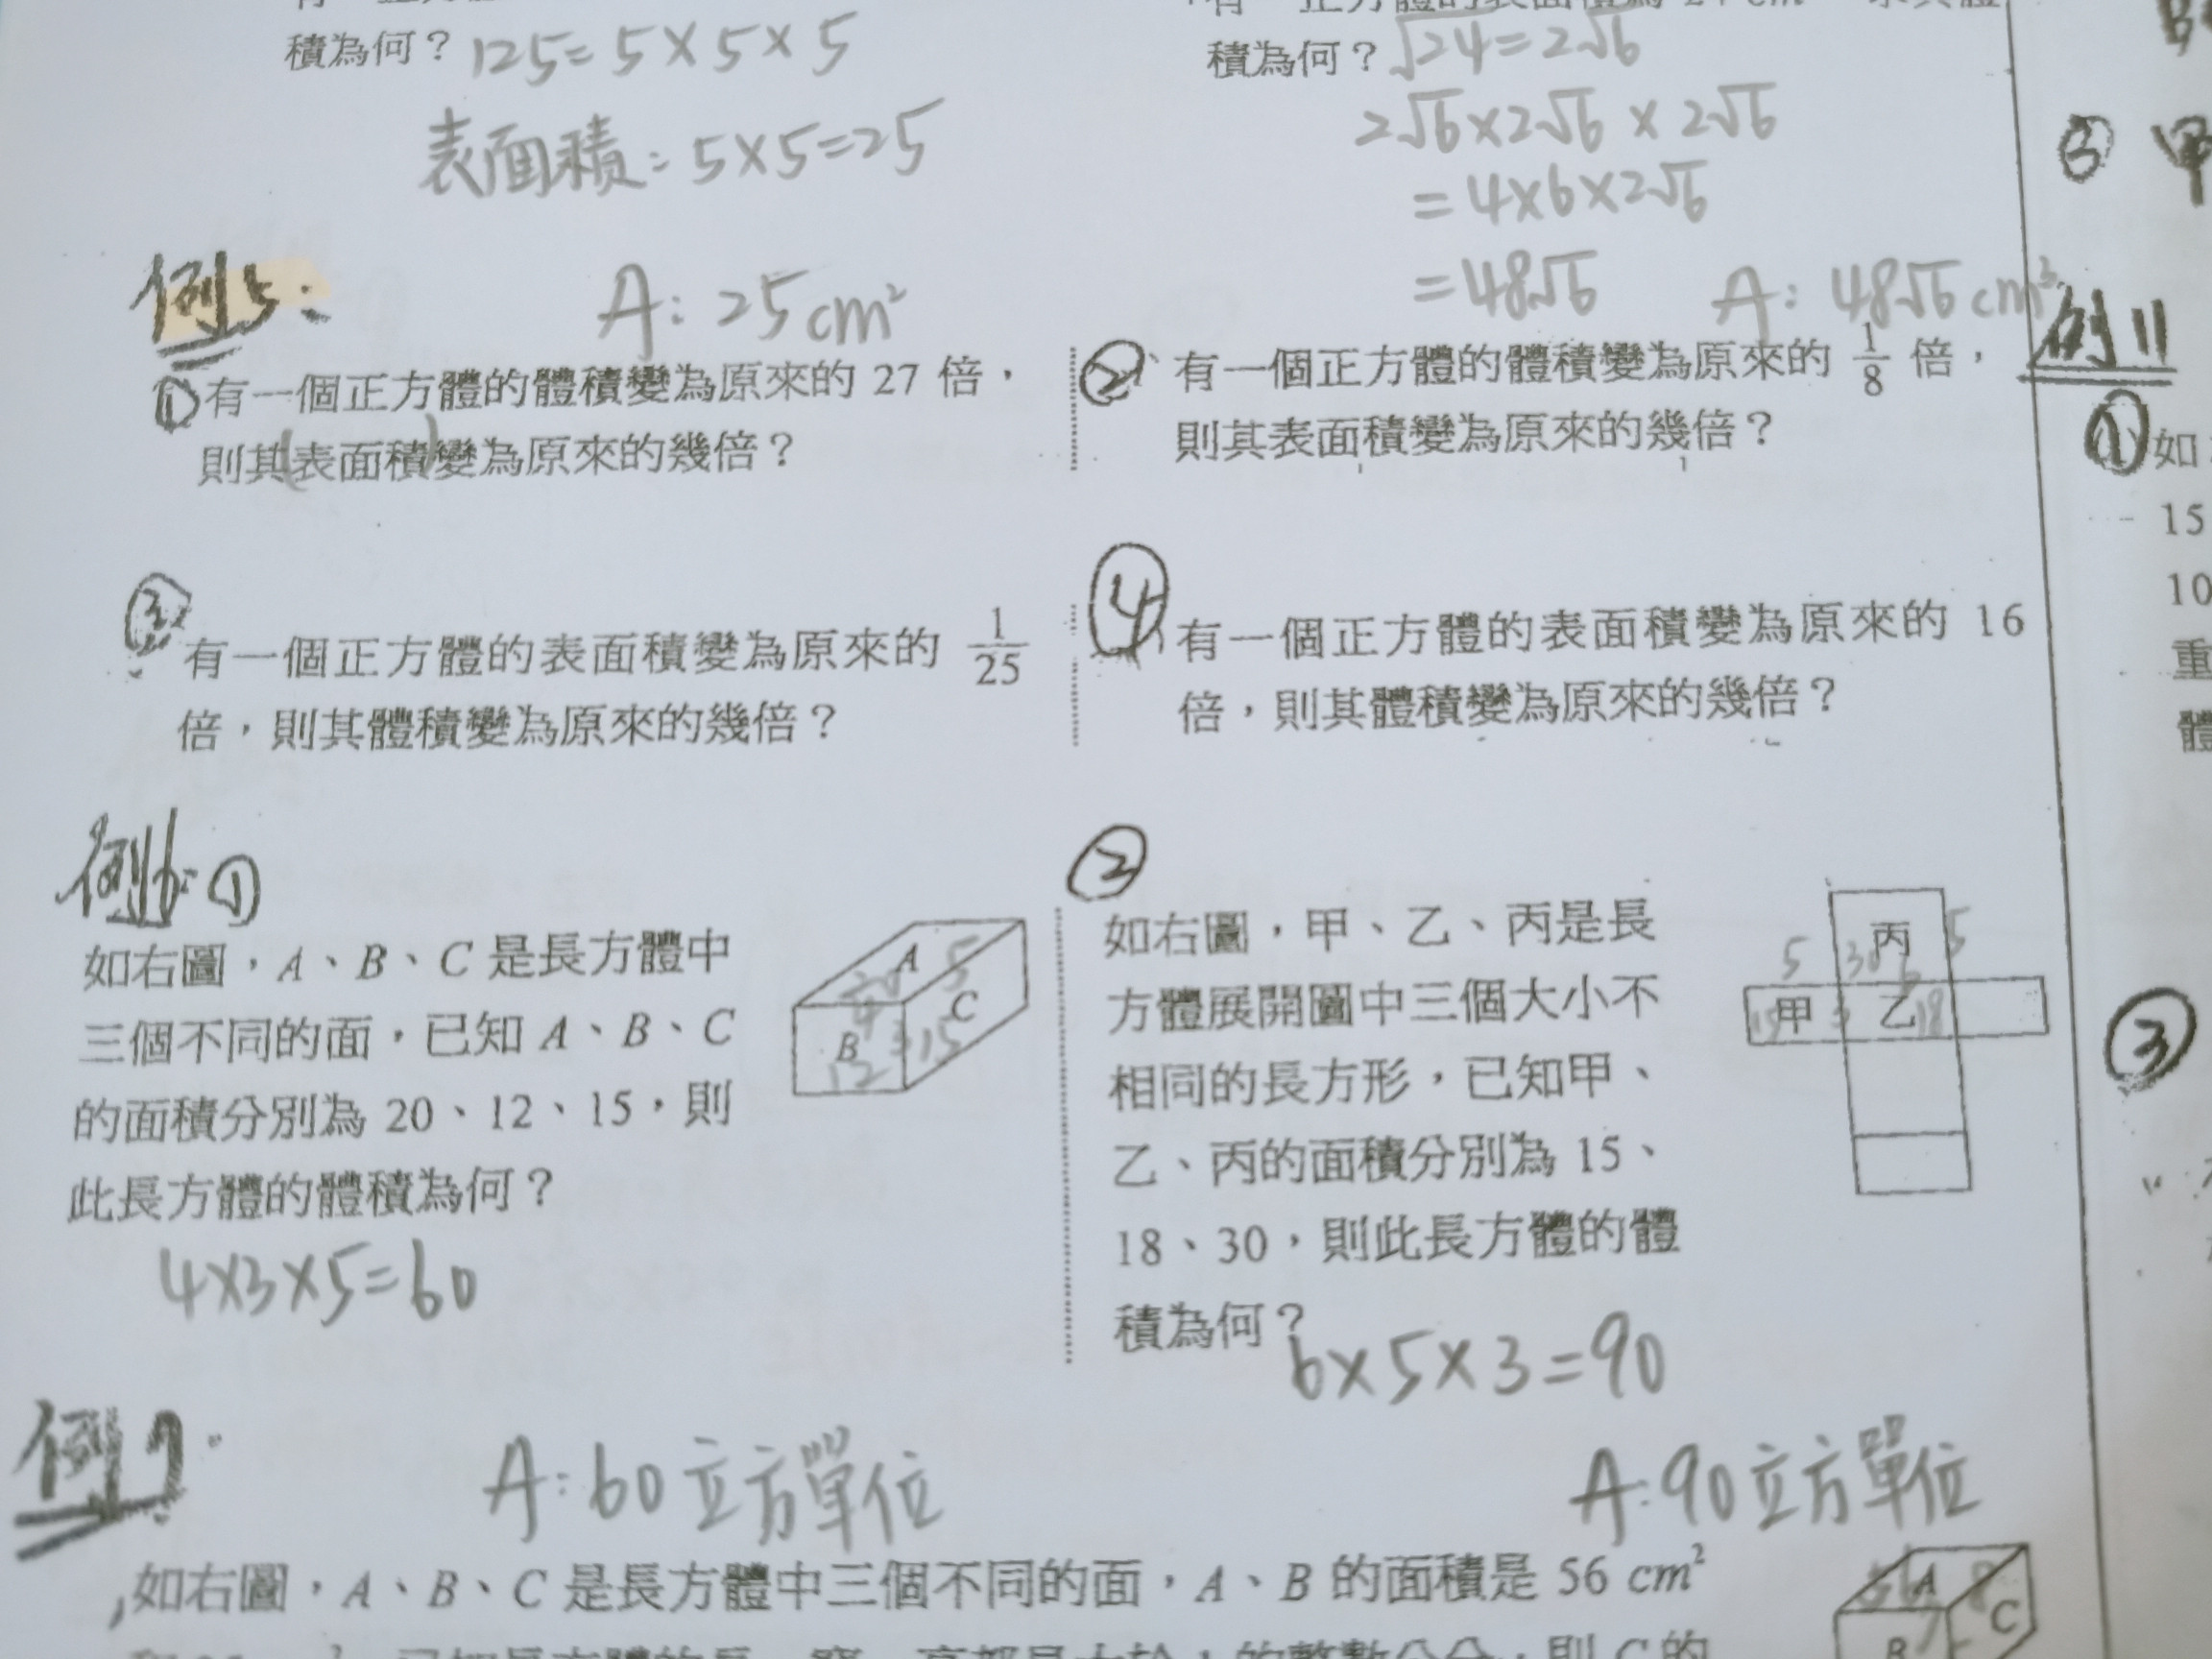 積為何？ 125=5×5×5
表面積：5×5=25
A：25cm²
有一正方體的表面積為 24 cm² 求其體
積為何？ √24=2√6
2√6×2√6×2√6
=4×6×2√6
=48√6 A：48√6cm³
例5：
① 有一個正方體的體積變為原來的 27 倍，
則其(表面積)變為原來的幾倍？
② 有一個正方體的體積變為原來的 1/8 倍，
則其表面積變為原來的幾倍？
③ 有一個正方體的表面積變為原來的 1/25
倍，則其體積變為原來的幾倍？
④ 有一個正方體的表面積變為原來的 16
倍，則其體積變為原來的幾倍？
例6：①
如右圖，A、B、C 是長方體中
三個不同的面，已知 A、B、C
的面積分別為 20、12、15，則
此長方體的體積為何？
A 20 5
B 12 4 3
C 15
4×3×5=60
A：60立方單位
②
如右圖，甲、乙、丙是長
方體展開圖中三個大小不
相同的長方形，已知甲、
乙、丙的面積分別為 15、
18、30，則此長方體的體
積為何？
丙 30 5
5 6
甲 15 3 乙 18
6×5×3=90
A：90立方單位
例7：
如右圖，A、B、C 是長方體中三個不同的面，A、B 的面積是 56 cm²
A 56 8
B 7
C
③ 甲
例11
① 如
15
10
重
體
③